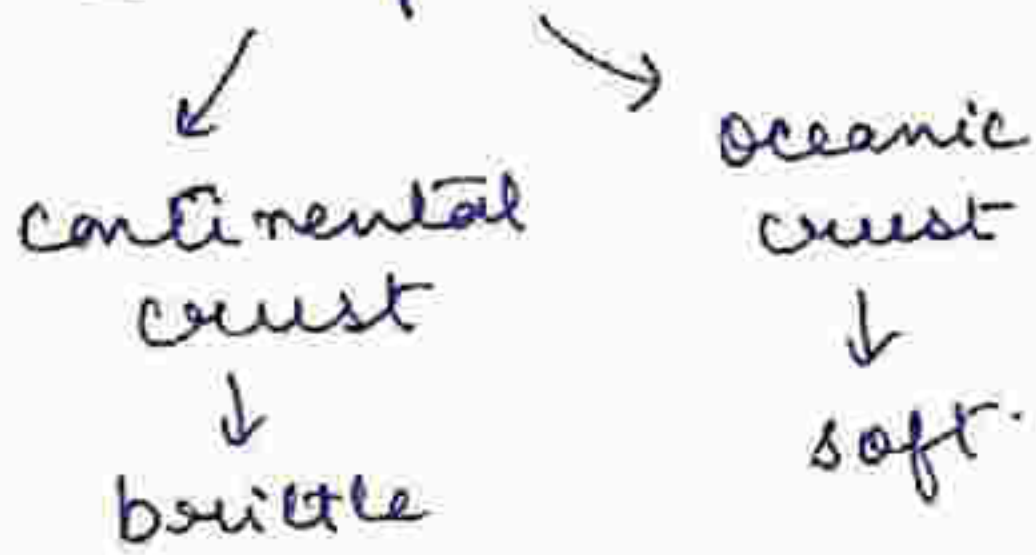 continental
crust
↓
brittle
oceanic
crust
↓
soft.